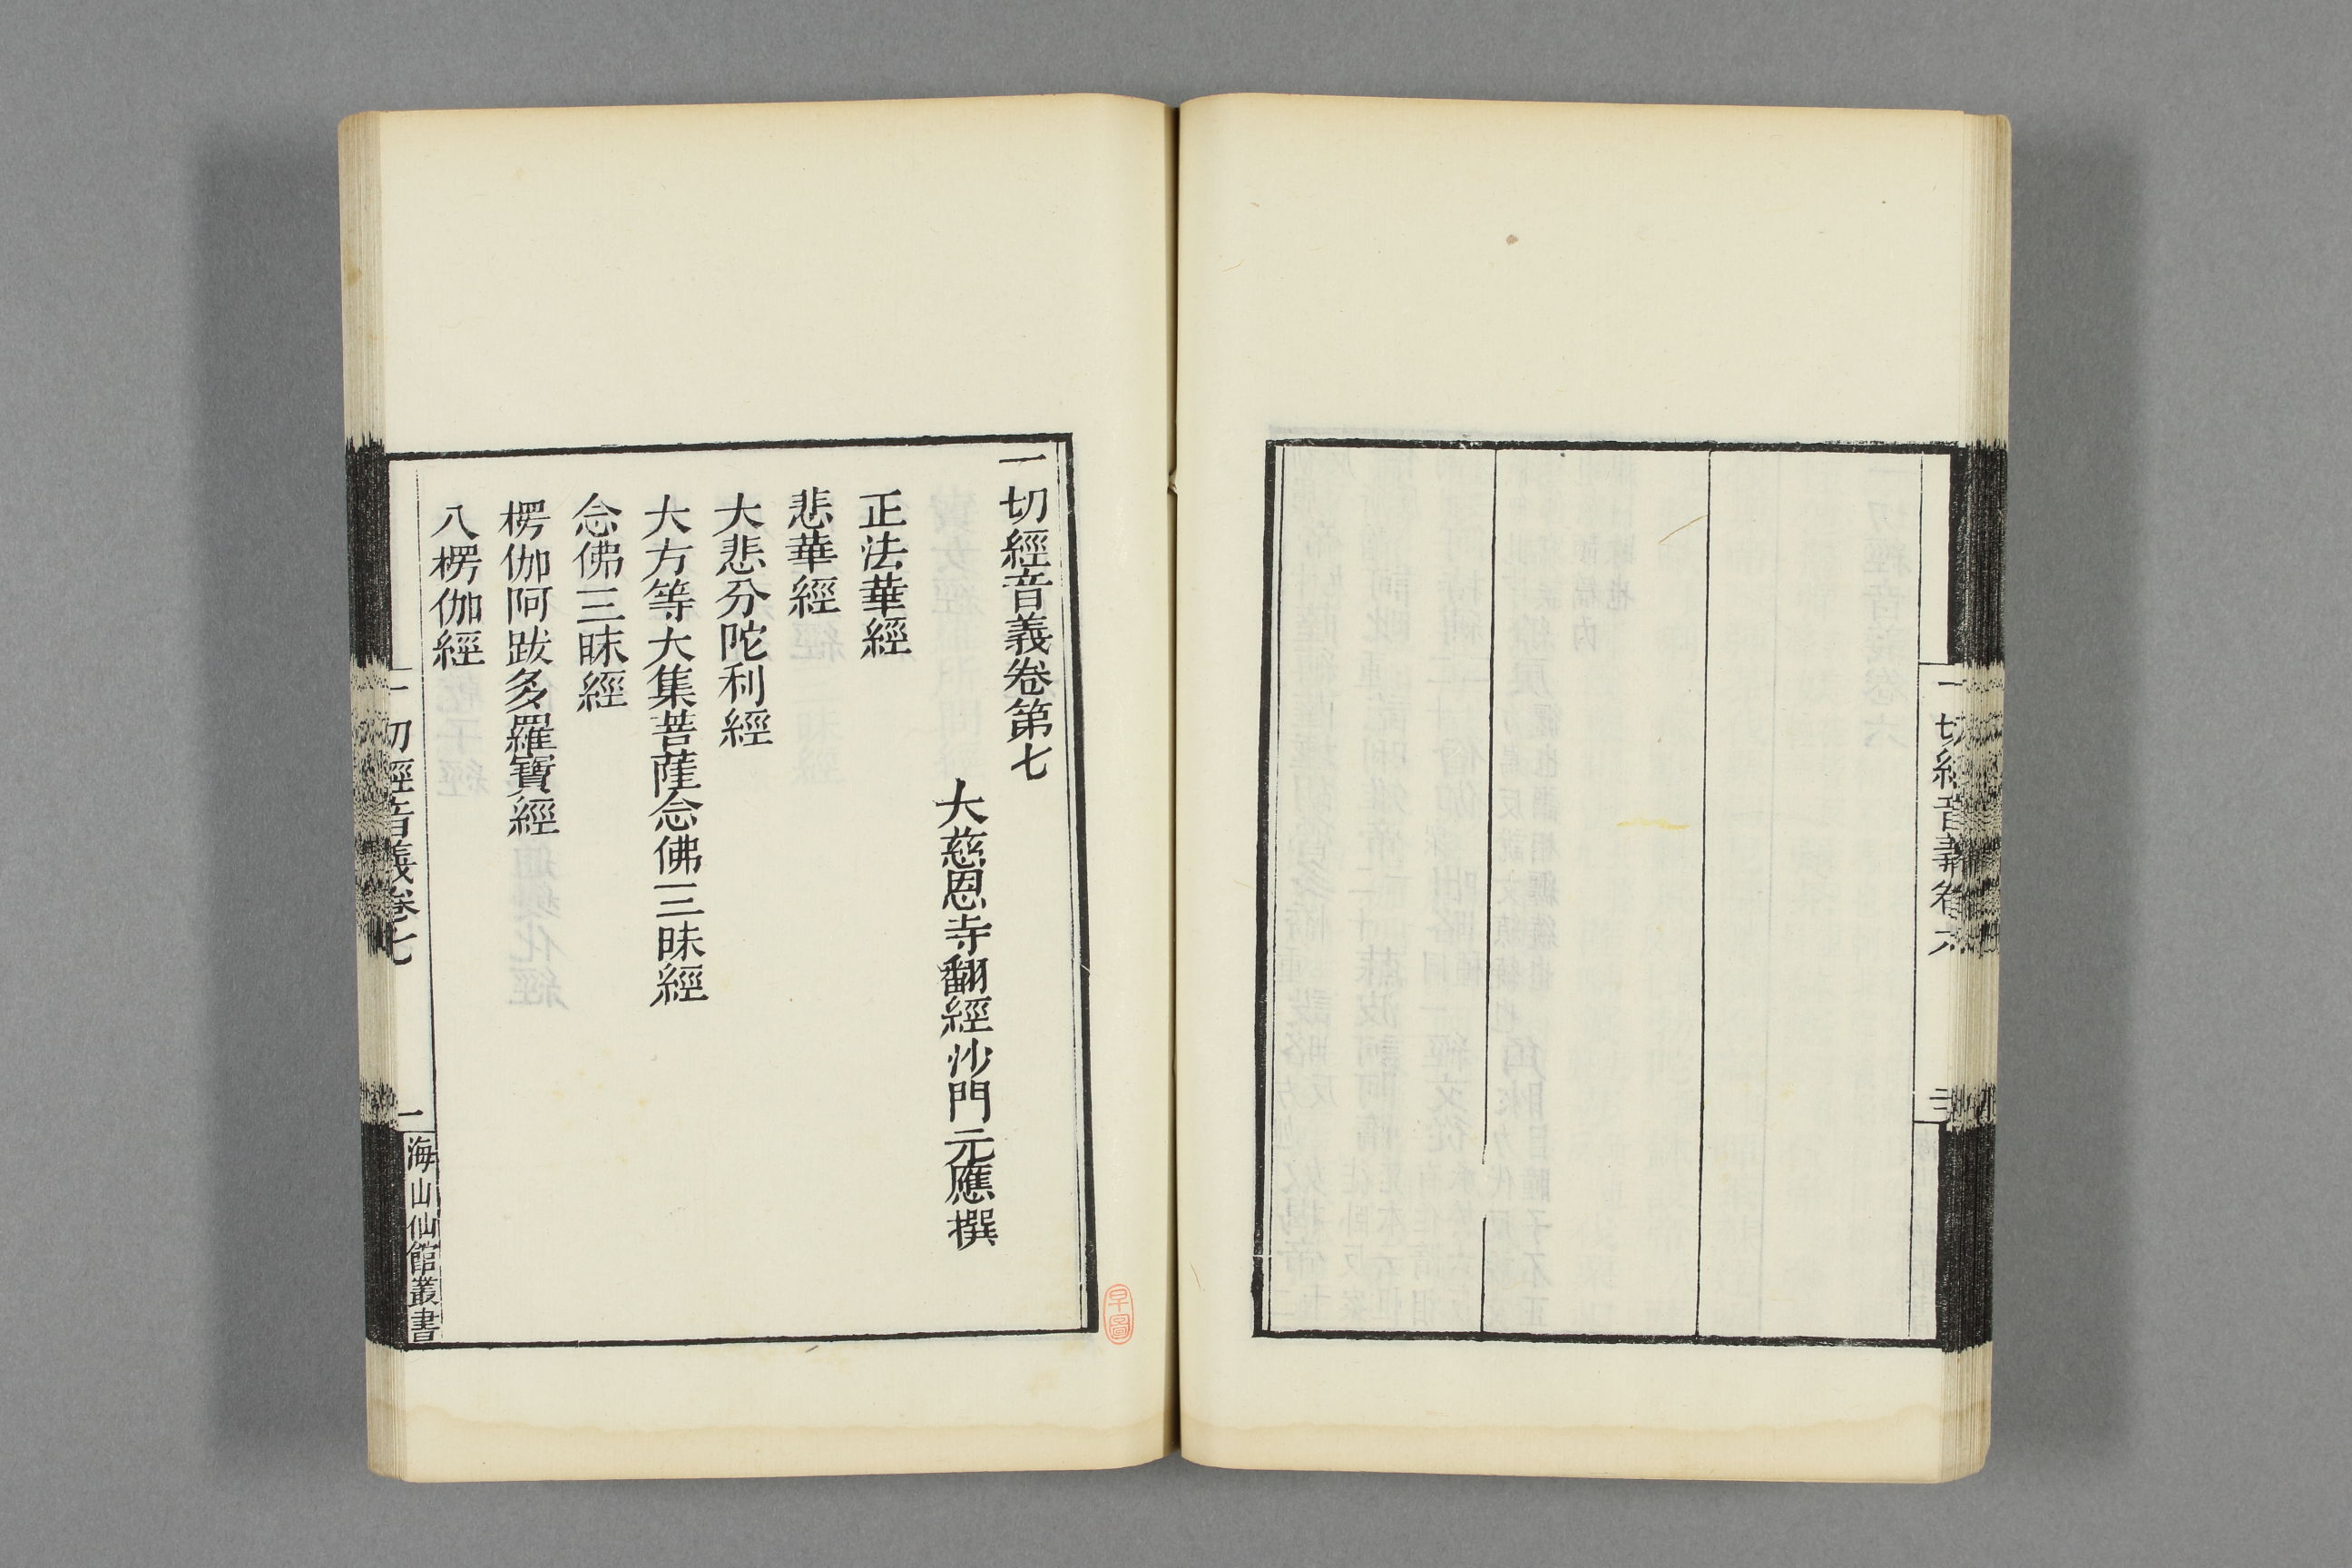 一切經音義卷六
一切經音義卷第七
大慈恩寺翻經沙門元應撰
正法華經
悲華經
大悲分陀利經
大方等大集菩薩念佛三昧經
念佛三昧經
楞伽阿跋多羅寶經
入楞伽經
一切經音義卷七
一
海山仙館叢書
早圖